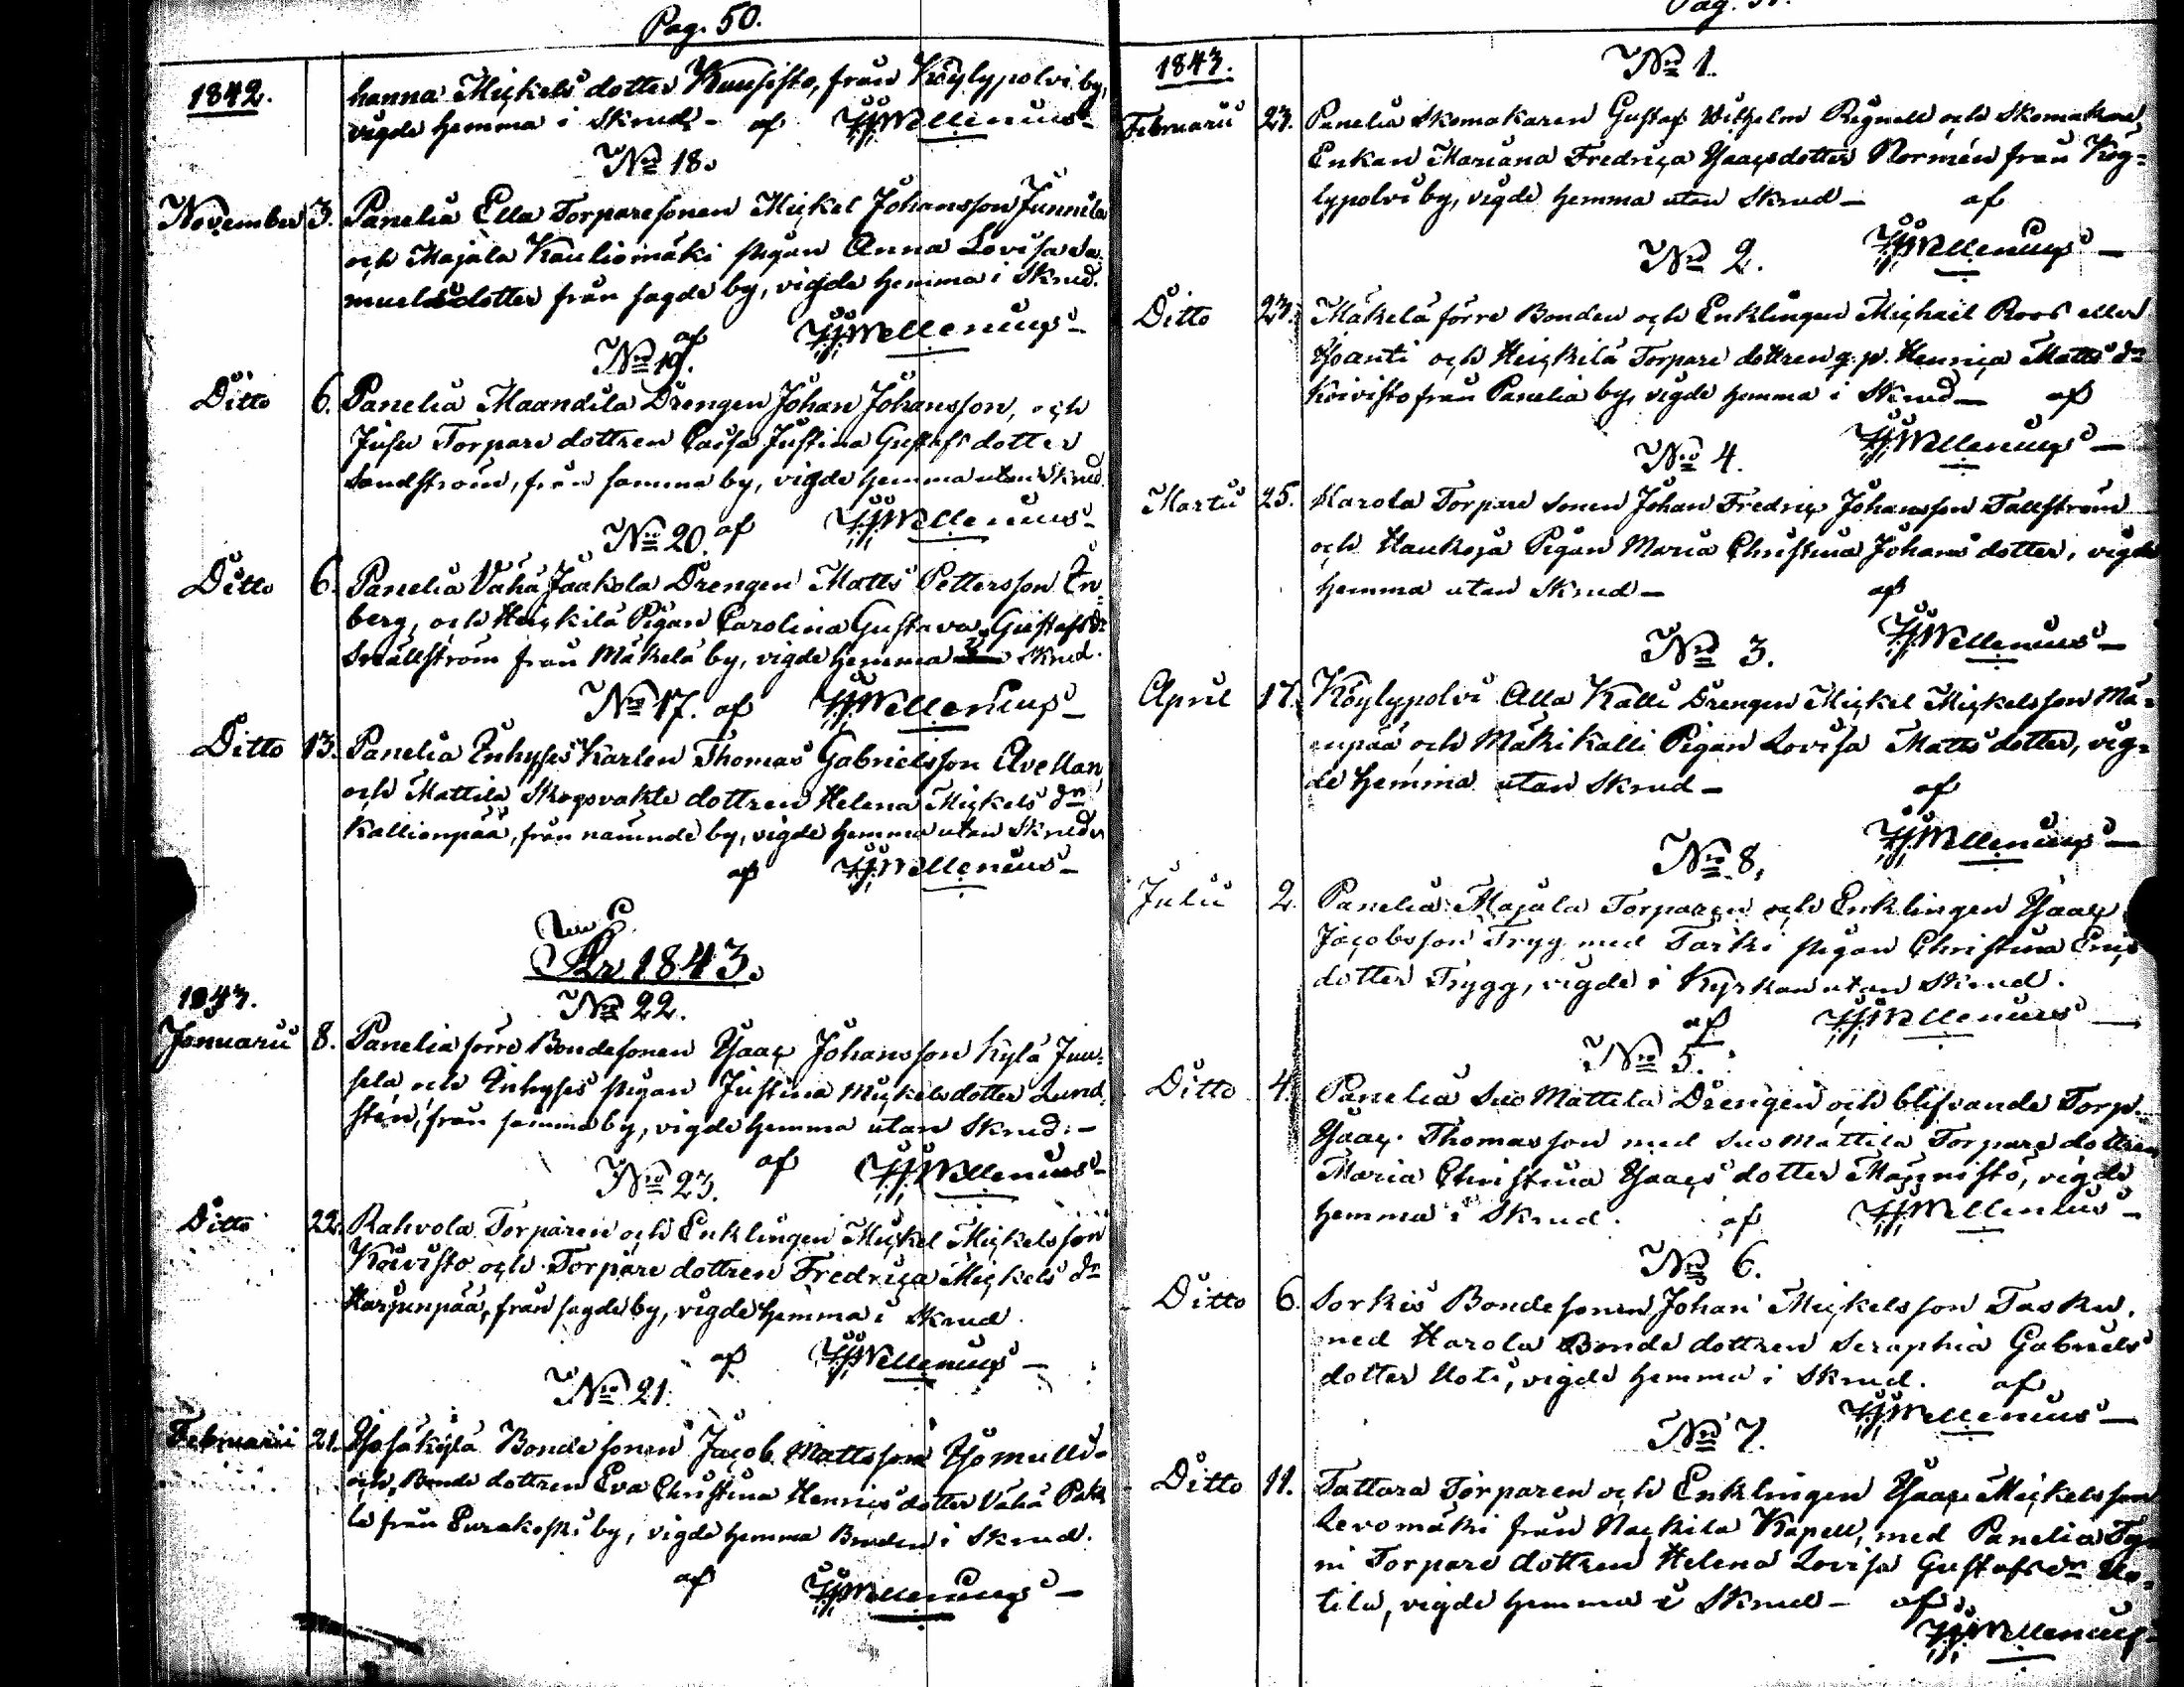 Pag. 50.
1842.
hanna Mickels dotter Kuusisto, från Köylypolvi by,
vigde hemma i Skrud - af Wellenius
No 18.
November 3. Panelia Ella Torparesonen Mickel Johansson Junnila
och Majala Kauliomäki pigan Anna Lovisa Sa-
muelsdotter från sagde by, vigde hemma i Skrud.
af Wellenius
No 19.
Ditto 6. Panelia Maandila Drengen Johan Johansson, och
Jusu Torpare dottren Caisa Justina Gustafs dotter
Sandström, från samma by, vigde hemma utan Skrud.
af Wellenius
No 20.
Ditto 6. Panelia Vähä Jaakola Drengen Matts Pettersson En-
berg, och Heickilä Pigan Carolina Gustava Gustafs dr
Smällström från Mäkelä by, vigde hemma i Skrud.
af Wellenius
No 17.
Ditto 13. Panelia Inhyses Karlen Thomas Gabrielsson Avellan
och Mattila Skogsvakte dottren Helena Mickels dr
Kallionpää, från nämnde by, vigde hemma utan Skrud
af Wellenius
År 1843.
1843.
No 22.
Januarii 8. Panelia förre Bondesonen Isaac Johansson Kylä Juu-
sela och Inhyses pigan Justina Mickelsdotter Lund-
stén, från samma by, vigde hemma utan Skrud. -
af Wellenius
No 23.
Ditto 22. Rahvola Torparen och Enklingen Mickel Mickelsson
Koivisto och Torpare dottren Fredrica Mickels dr
Harjunpää, från sagde by, vigde hemma i Skrud.
af Wellenius
No 21.
Februarii 21. Bonde sonen Jacob Mattsson Isomulli
och Bonde dottren Eva Christina Henrics dotter Vähä
från Eurakoski by, vigde hemma Bruden i Skrud.
af Wellenius
Pag. 51.
1843.
No 1.
Februarii 23. Panelia Skomakaren Gustaf Wilhelm Regnell och Skomakare
Enkan Mariana Fredrica Isaacsdotter Normén från Köy-
lypolvi by, vigde hemma utan Skrud - af
Wellenius
No 2.
Ditto 23. Mäkelä förre Bonden och Enklingen Michaël Roos eller
Isoanti och Heickilä Torpare dottren q. p. Henrica Matts dr
Koivisto från Panelia by, vigde hemma i Skrud - af
Wellenius
No 4.
Martii 25. Harola Torpare sonen Johan Fredric Johansson Tallström
och Haukoja Pigan Maria Christina Johans dotter, vigde
hemma utan Skrud - af
Wellenius
No 3.
April 17. Köylypolvi Alla Källi Drengen Mickel Mickelsson Mä-
enpää, och Mäkikalli Pigan Lovisa Matts dotter, vig-
de hemma utan Skrud - af
Wellenius
No 8.
Julii 2. Panelia Majala Torparen och Enklingen Isaac
Jacobsson Tryg med Tarki pigan Christina Erics
dotter Trygg, vigde i Kyrkan utan Skrud.
af Wellenius
No 5.
Ditto 4. Panelia Suo Mattila Drengen och blifvande Torp.
Isaac Thomasson med Suo Mattila Torpare dottren
Maria Christina Isaacs dotter Mannistö, vigde
hemma i Skrud. af Wellenius
No 6.
Ditto 6. Sorkis Bonde sonen Johan Mickelsson Tasku.
med Harola Bonde dottren Seraphia Gabriels
dotter Uoti, vigde hemma i Skrud. af
Wellenius
No 7.
Ditto 11. Tattara Torparen och Enklingen Isaac Mickelsson
Levomäki från Nackila Kapell, med Panelia Ty-
ni Torpare dottren Helena Lovisa Gustafs dr Uo-
tila, vigde hemma i Skrud - af
Wellenius